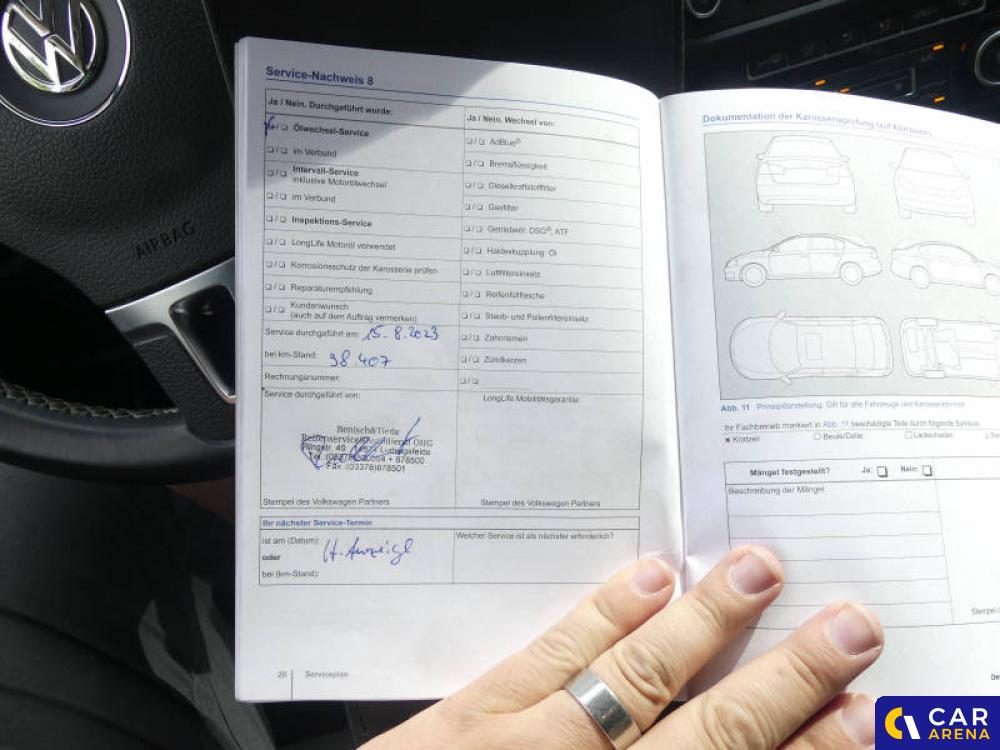 AIRBAG
Service-Nachweis 8
Ja / Nein. Durchgeführt wurde:
Ölwechsel-Service
im Verbund
Intervall-Service
inklusive Motorölwechsel
im Verbund
Inspektions-Service
LongLife Motoröl verwendet
Korrosionsschutz der Karosserie prüfen
Reparaturempfehlung
Kundenwunsch
(auch auf dem Auftrag vermerken)
Service durchgeführt am: 15.8.2023
bei km-Stand: 98.407
Rechnungsnummer:
Service durchgeführt von:
Benisch&Tiede
Reifenservice
OHG
Ringstr.
Ludwigsfelde
+ 878500
Fax.:(03378)878501
Stempel des Volkswagen Partners
Ja / Nein. Wechsel von:
AdBlue®
Bremsflüssigkeit
Dieselkraftstofffilter
Gasfilter
Getriebeöl: DSG®, ATF
Haldexkupplung: Öl
Luftfiltereinsatz
Reifenfüllflasche
Staub- und Pollenfiltereinsatz
Zahnriemen
Zündkerzen
LongLife Mobilitätsgarantie:
Stempel des Volkswagen Partners
Ihr nächster Service-Termin
ist am (Datum):
oder
bei (km-Stand):
Welcher Service ist als nächster erforderlich?
20 Serviceplan
Dokumentation der Karosserieprüfung (auf Korrosion)
Abb. 11 Prinzipdarstellung: Gilt für alle Fahrzeuge und Karosserieformen
Ihr Fachbetrieb markiert in Abb. 11 beschädigte Teile durch folgende Symbole
Kratzer
Beule/Delle
Lackschaden
Mängel festgestellt? Ja: Nein:
Beschreibung der Mängel
CAR
ARENA